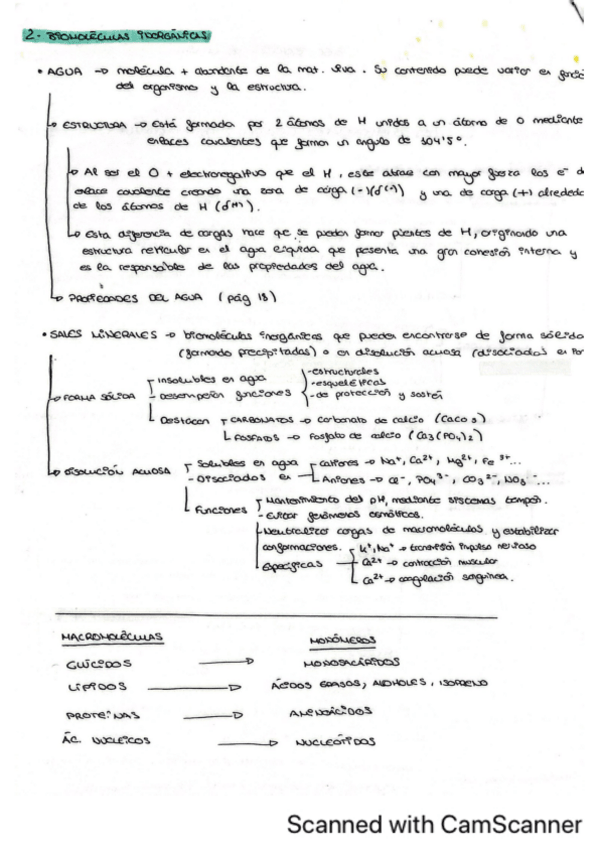 2- BIOMOLÉCULAS INORGÁNICAS
• AGUA → molécula + abundante de la mat. viva. Su contenido puede variar en funció
del organismo y la estructura.
→ ESTRUCTURA → Está formada por 2 átomos de H unidos a un átomo de O mediante
enlaces covalentes que forman un angulo de 104'5°.
→ Al ser el O + electronegativo que el H, este atrae con mayor fuerza los e⁻ d
enlace covalente creando una zona de carga (-) (δ(-)) y una de carga (+) alrededo
de los átomos de H (δ(+)).
→ Esta diferencia de cargas hace que se puedan formar puentes de H, originando una
estructura reticular en el agua líquida que presenta una gran cohesión interna y
es la responsable de las propiedades del agua.
→ PROPIEDADES DEL AGUA (pág 18)
• SALES MINERALES → biomoléculas inorgánicas que pueden encontrarse de forma sólida
(formando precipitados) o en disolución acuosa (disociadas en
→ FORMA SÓLIDA
- Insolubles en agua
- Desempeñan funciones
- estructurales
- esqueléticas
- de protección y sostén
Destacan
CARBONATOS → carbonato de calcio (CaCO3)
FOSFATOS → Fosfato de calcio (Ca3(PO4)2)
→ DISOLUCIÓN ACUOSA
- Solubles en agua
- Disociados en
Cationes → Na⁺, Ca²⁺, Mg²⁺, Fe³⁺...
Aniones → Cl⁻, PO₄³⁻, CO₃²⁻, NO₃⁻...
Funciones
- Mantenimiento del pH, mediante sistemas tampón.
- Evitar fenómenos osmóticos.
- Neutralizar cargas de macromoléculas y estabilizar
conformaciones.
Específicas
K⁺, Na⁺ → transmisión impulso nervioso
Ca²⁺ → contracción muscular
Ca²⁺ → coagulación sanguínea.
MACROMOLÉCULAS MONÓMEROS
GLÚCIDOS → MONOSACÁRIDOS
LÍPIDOS → ÁCIDOS GRASOS, ALCOHOLES, ISOPRENO
PROTEÍNAS → AMINOÁCIDOS
ÁC. NUCLEICOS → NUCLEÓTIDOS
Scanned with CamScanner